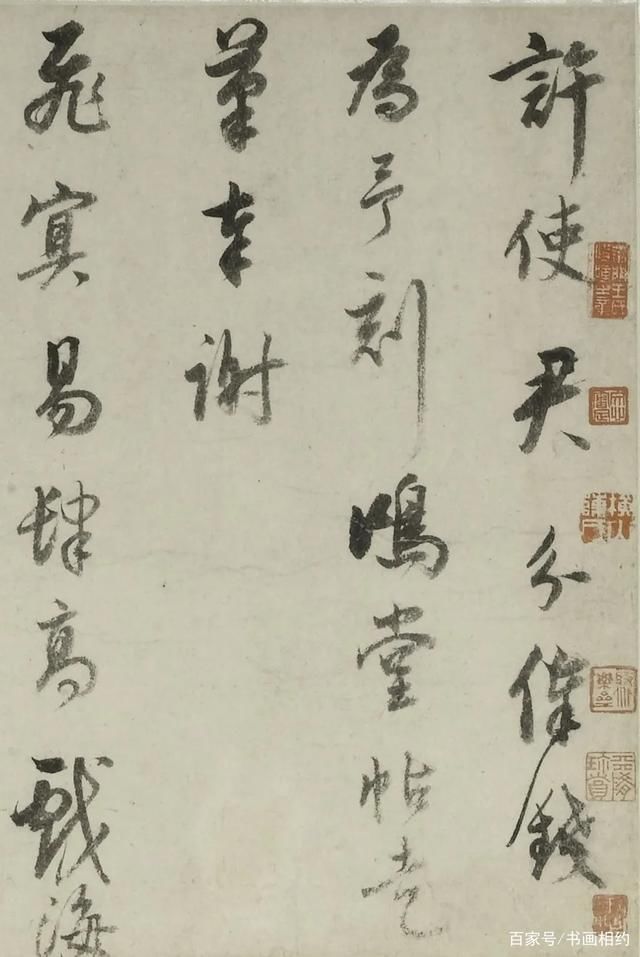 許使君分俸錢
為予刻鳴堂帖走
筆奉謝
飛冥易肆高戢海
百家号/书画相约